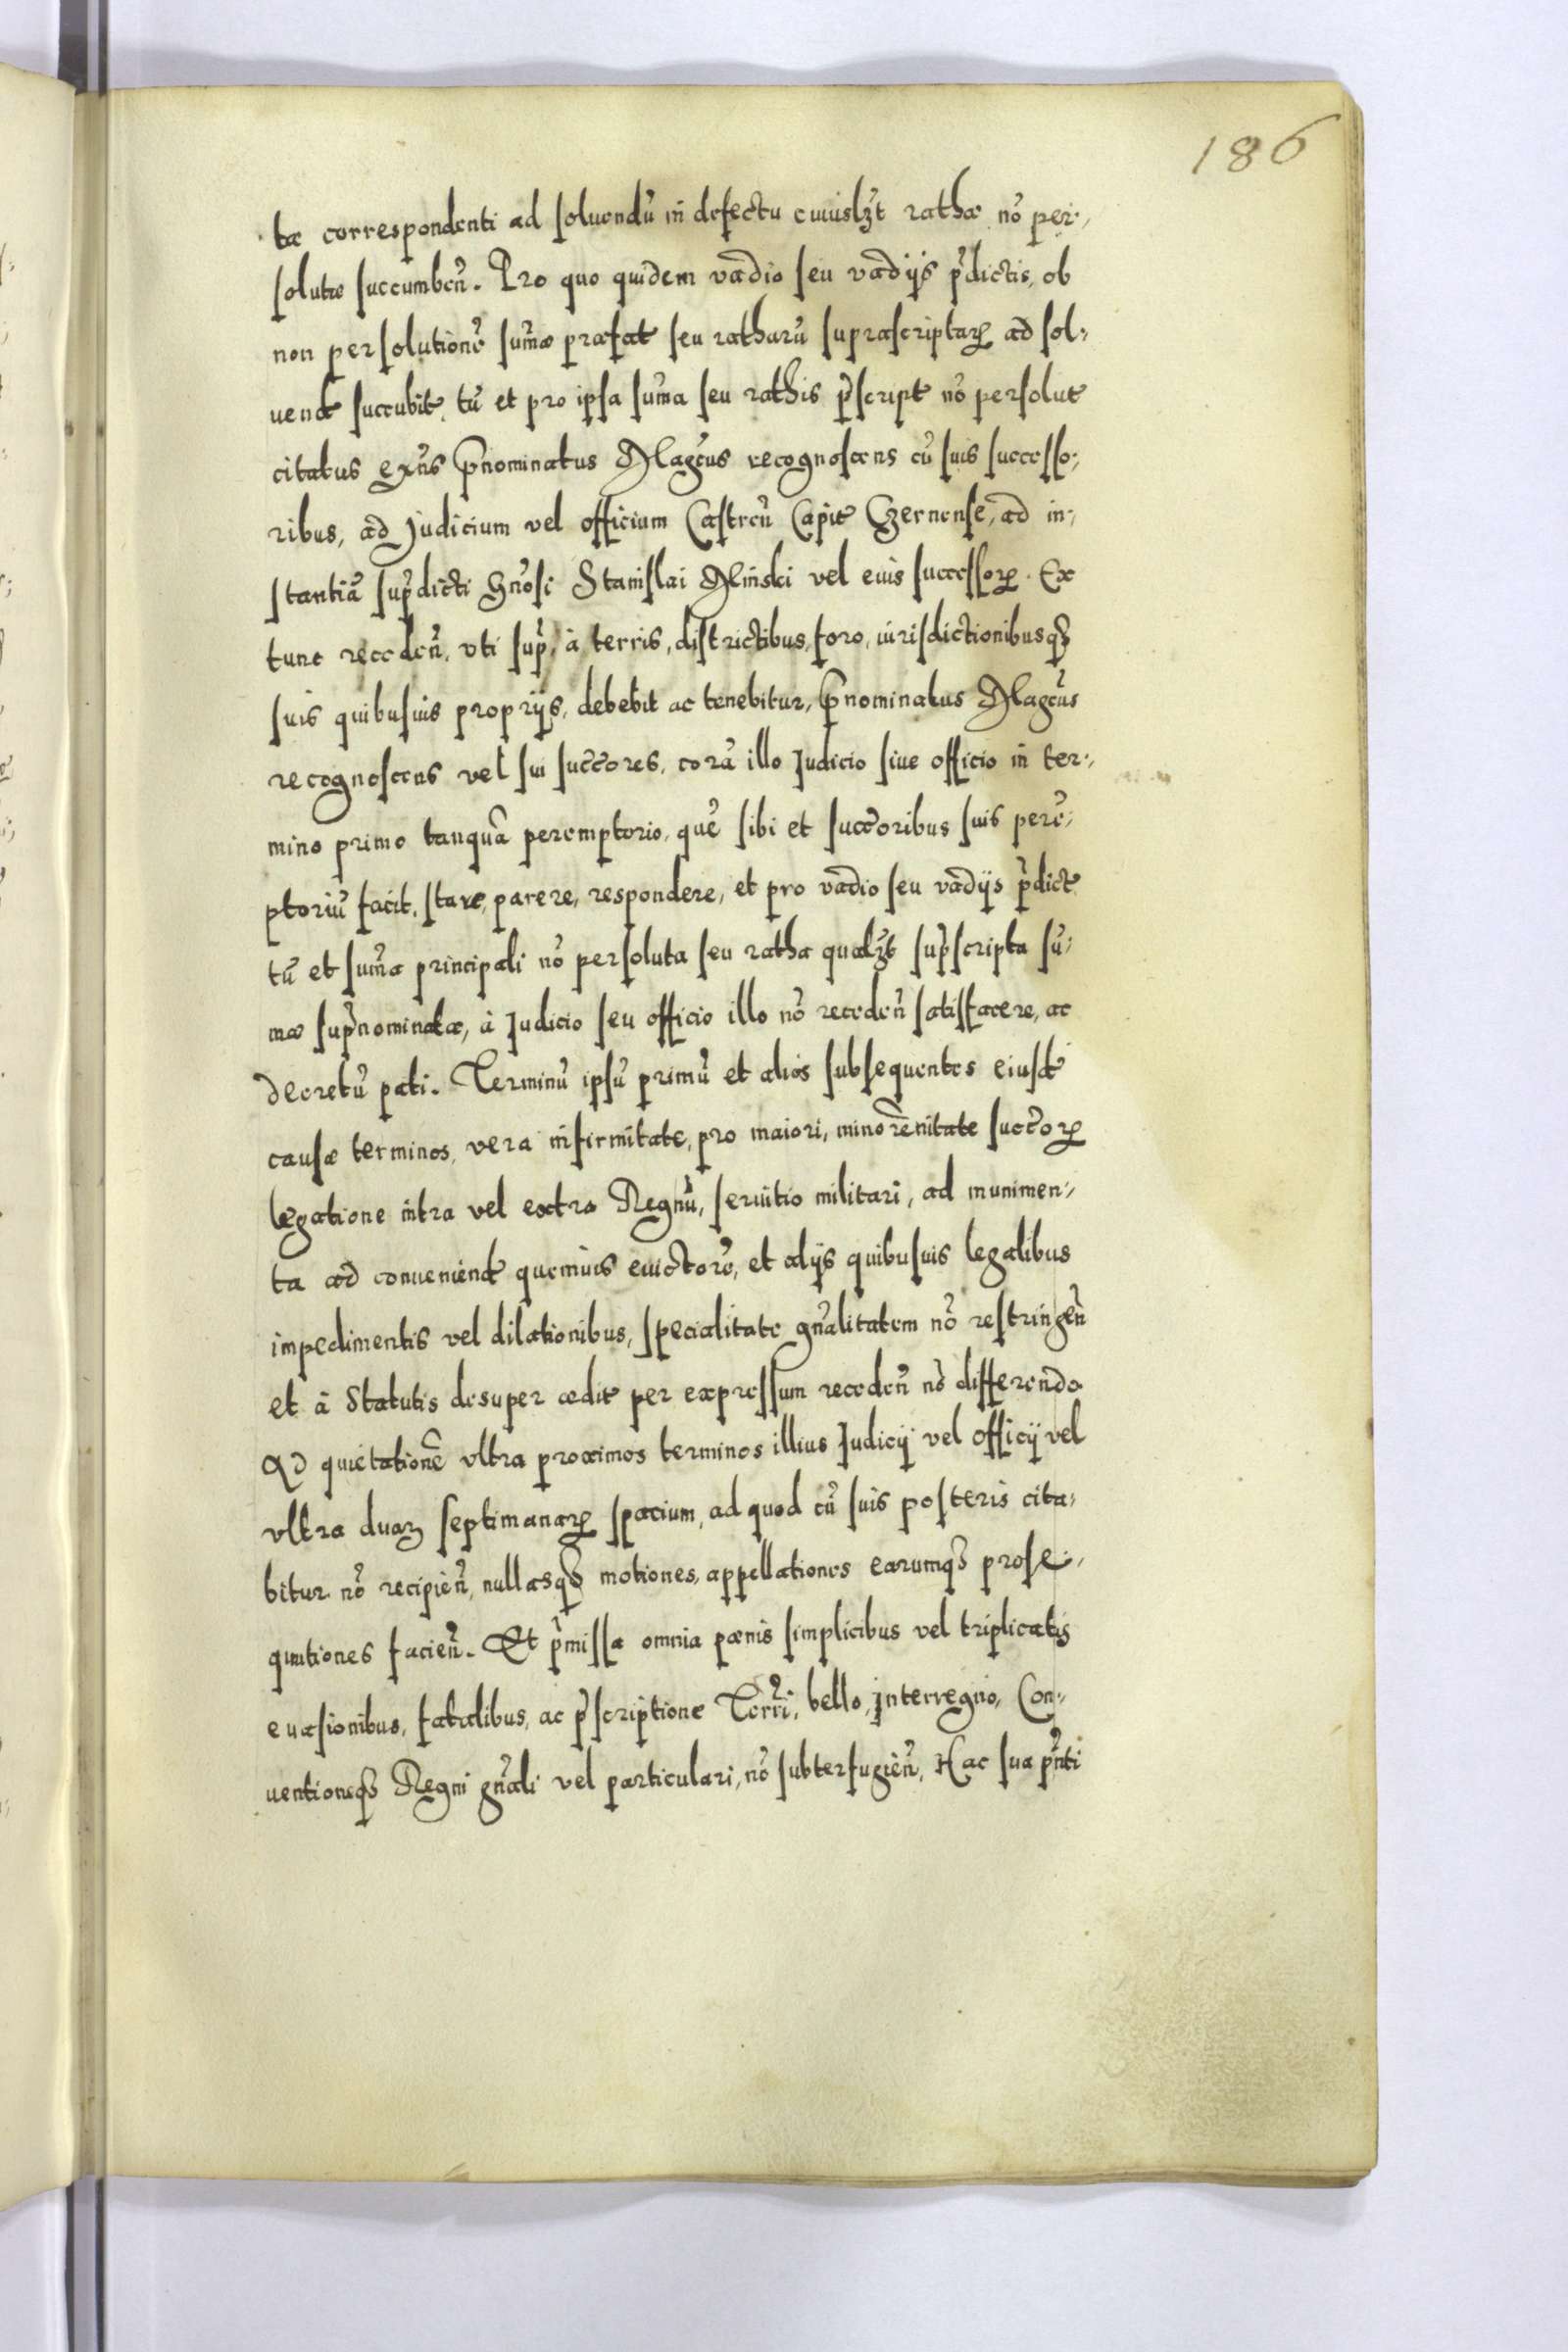 186
tæ correspondenti ad soluendū in defectu cuiuslȝt rathæ nō per,
solutæ succumbeñ. Pro quo quidem vadio seu vadijs p̄dictis, ob
non persolutionē sum̄æ præfat seu ratharū suprascriptaꝝ ad sol,
uend succubit, tū et pro ipsa sum̄a seu rathis p̄script nō persolut
citatus exn̄s p̄nominatus Magc̄us recognoscens cū suis successo,
ribus, ad Judicium vel officium Castreñ Capit Czernense, ad in,
stantiā sup̄dicti Gn̄osi Stanislai Minski vel eius successoꝝ. Ex
tunc recedeñ, vti sup̄, à terris, districtibus, foro, iurisdictionibusqꝫ
suis quibusuis proprijs, debebit ac tenebitur, p̄nominatus Magc̄us
recognoscens vel sui succ̄ores, corā illo Judicio siue officio in ter,
mino primo tanquā peremptorio, quē sibi et succ̄oribus suis perē,
ptoriū facit, stare, parere, respondere, et pro vadio seu vadijs p̄dict
tū et sum̄a principali nō persoluta seu ratha qualȝt sup̄scripta sū,
mæ sup̄nominatæ, à Judicio seu officio illo nō recedeñ satisfacere, ac
decretū pati. Terminū ipsū primū et alios subsequentes eiusd
causæ terminos, vera infirmitate, pro maiori, minorēnitate succ̄oꝝ
legatione intra vel extra Regnū, seruitio militari, ad munimen,
ta ad conueniend quemuis euictorē, et alijs quibusuis legalibus
impedimentis vel dilationibus, specialitate gn̄alitatem nō restringeñ
et à Statutis desuper ædit per expressum recedeñ nō differendo
Ad quietationē vltra proximos terminos illius Judicij vel officij vel
vltra duaꝝ septimanaꝝ spacium, ad quod cū suis posteris cita,
bitur nō recipieñ, nullasqꝫ motiones, appellationes earumqꝫ prose,
quutiones facieñ. Et p̄missa omnia pœnis simplicibus vel triplicatis
euasionibus, fatalibus, ac p̄scriptione Terrī, bello, Interregno, Con,
uentioneqꝫ Regni gn̄ali vel particulari, nō subterfugieñ, Hac sua p̄nti